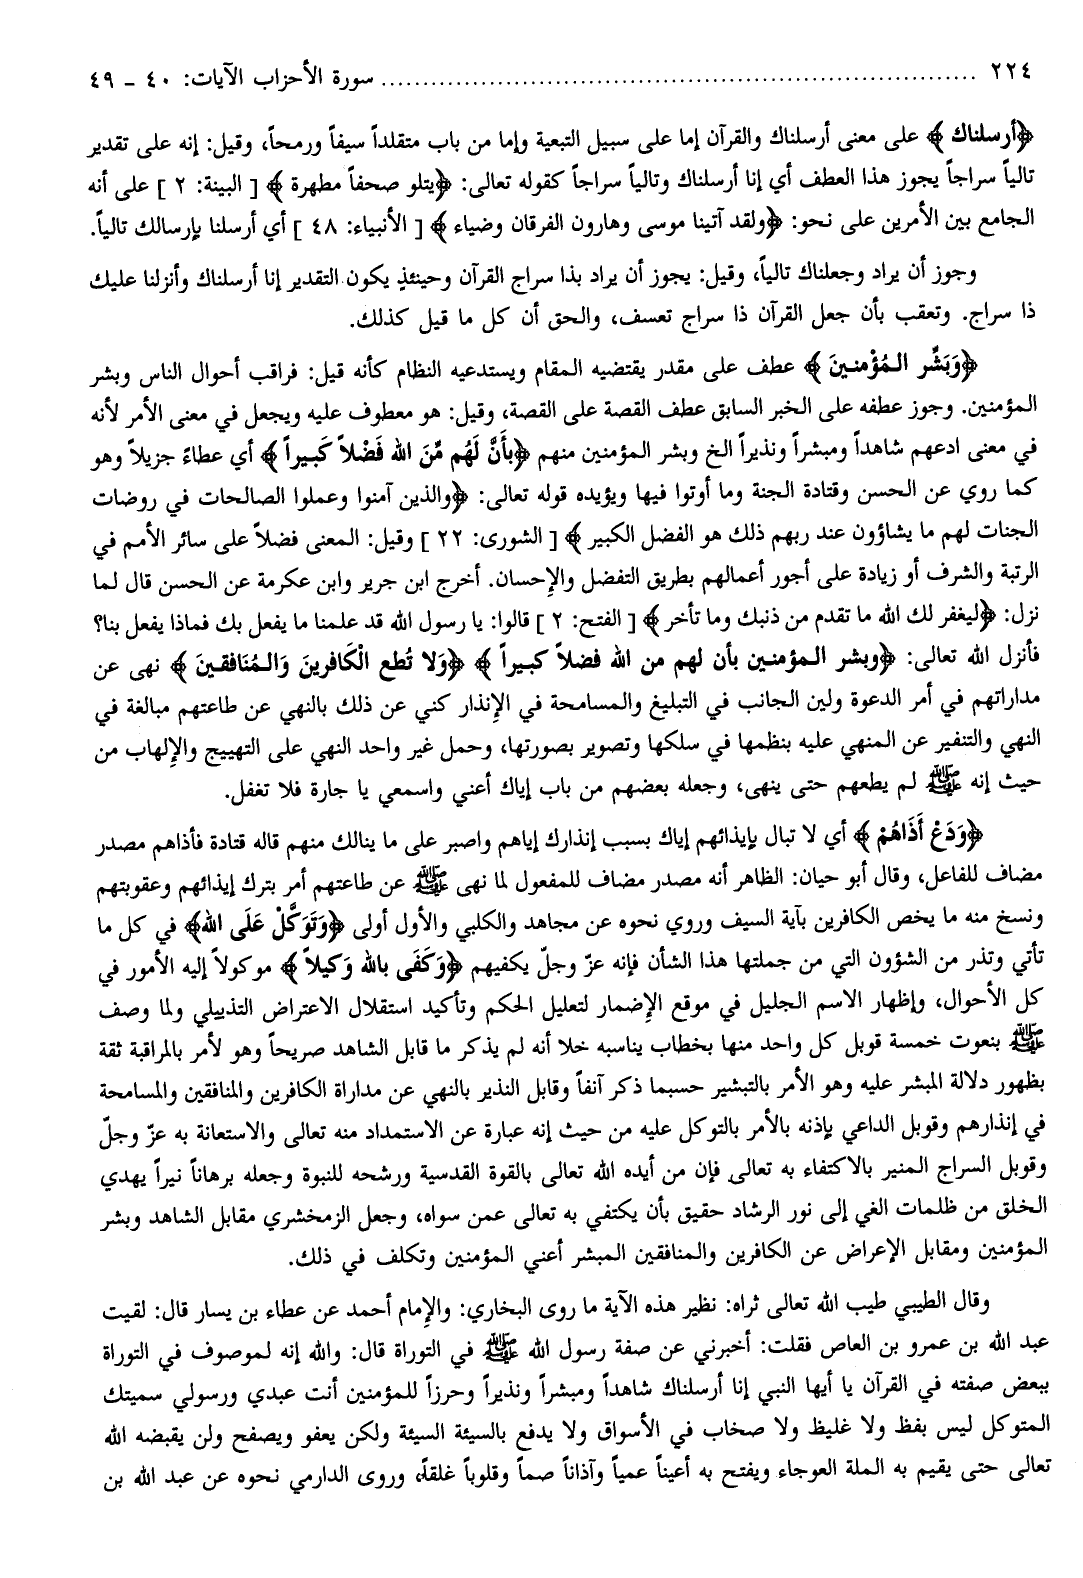 ٢٢٤ ........................................................................ سورة الأحزاب الآيات: ٤٠ - ٤٩
﴿أرسلناك﴾ على معنى أرسلناك والقرآن إما على سبيل التبعية وإما من باب متقلداً سيفاً ورمحاً، وقيل: إنه على تقدير
تالياً سراجاً يجوز هذا العطف أي إنا أرسلناك وتالياً سراجاً كقوله تعالى: ﴿يتلو صحفاً مطهرة﴾ [ البينة: ٢ ] على أنه
الجامع بين الأمرين على نحو: ﴿ولقد آتينا موسى وهارون الفرقان وضياء﴾ [ الأنبياء: ٤٨ ] أي أرسلنا بإرسالك تالياً.
وجوز أن يراد وجعلناك تالياً، وقيل: يجوز أن يراد بذا سراج القرآن وحينئذٍ يكون التقدير إنا أرسلناك وأنزلنا عليك
ذا سراج. وتعقب بأن جعل القرآن ذا سراج تعسف، والحق أن كل ما قيل كذلك.
﴿وَبَشِّر الـمُؤْمنـينَ﴾ عطف على مقدر يقتضيه المقام ويستدعيه النظام كأنه قيل: فراقب أحوال الناس وبشر
المؤمنين. وجوز عطفه على الخبر السابق عطف القصة على القصة، وقيل: هو معطوف عليه ويجعل في معنى الأمر لأنه
في معنى ادعهم شاهداً ومبشراً ونذيراً الخ وبشر المؤمنين منهم ﴿بأَنَّ لَهُم مِّنَ الله فَضْلاً كَبـيراً﴾ أي عطاءً جزيلاً وهو
كما روي عن الحسن وقتادة الجنة وما أوتوا فيها ويؤيده قوله تعالى: ﴿والذين آمنوا وعملوا الصالحات في روضات
الجنات لهم ما يشاؤون عند ربهم ذلك هو الفضل الكبير﴾ [ الشورى: ٢٢ ] وقيل: المعنى فضلاً على سائر الأمم في
الرتبة والشرف أو زيادة على أجور أعمالهم بطريق التفضل والإحسان. أخرج ابن جرير وابن عكرمة عن الحسن قال لما
نزل: ﴿ليغفر لك الله ما تقدم من ذنبك وما تأخر﴾ [ الفتح: ٢ ] قالوا: يا رسول الله قد علمنا ما يفعل بك فماذا يفعل بنا؟
فأنزل الله تعالى: ﴿وبشر المؤمنـين بأن لهم من الله فضلاً كبـيراً﴾ ﴿وَلا تُطع الْكَافرينَ وَالـمُنَافقـينَ﴾ نهى عن
مداراتهم في أمر الدعوة ولين الجانب في التبليغ والمسامحة في الإنذار كني عن ذلك بالنهي عن طاعتهم مبالغة في
النهي والتنفير عن المنهي عليه بنظمها في سلكها وتصوير بصورتها، وحمل غير واحد النهي على التهييج والإلهاب من
حيث إنه ﷺ لم يطعهم حتى ينهى، وجعله بعضهم من باب إياك أعني واسمعي يا جارة فلا تغفل.
﴿وَدَعْ أَذَاهُمْ﴾ أي لا تبال بإيذائهم إياك بسبب إنذارك إياهم واصبر على ما ينالك منهم قاله قتادة فأذاهم مصدر
مضاف للفاعل، وقال أبو حيان: الظاهر أنه مصدر مضاف للمفعول لما نهى ﷺ عن طاعتهم أمر بترك إيذائهم وعقوبتهم
ونسخ منه ما يخص الكافرين بآية السيف وروي نحوه عن مجاهد والكلبي والأول أولى ﴿وَتَوَكَّلْ عَلَى الله﴾ في كل ما
تأتي وتذر من الشؤون التي من جملتها هذا الشأن فإنه عزّ وجلّ يكفيهم ﴿وَكَفَى بالله وَكيلاً﴾ موكولاً إليه الأمور في
كل الأحوال، وإظهار الاسم الجليل في موقع الإضمار لتعليل الحكم وتأكيد استقلال الاعتراض التذييلي ولما وصف
ﷺ بنعوت خمسة قوبل كل واحد منها بخطاب يناسبه خلا أنه لم يذكر ما قابل الشاهد صريحاً وهو لأمر بالمراقبة ثقة
بظهور دلالة المبشر عليه وهو الأمر بالتبشير حسبما ذكر آنفاً وقابل النذير بالنهي عن مداراة الكافرين والمنافقين والمسامحة
في إنذارهم وقوبل الداعي بإذنه بالأمر بالتوكل عليه من حيث إنه عبارة عن الاستمداد منه تعالى والاستعانة به عزّ وجلّ
وقوبل السراج المنير بالاكتفاء به تعالى فإن من أيده الله تعالى بالقوة القدسية ورشحه للنبوة وجعله برهاناً نيراً يهدي
الخلق من ظلمات الغي إلى نور الرشاد حقيق بأن يكتفي به تعالى عمن سواه، وجعل الزمخشري مقابل الشاهد وبشر
المؤمنين ومقابل الإعراض عن الكافرين والمنافقين المبشر أعني المؤمنين وتكلف في ذلك.
وقال الطيبي طيب الله تعالى ثراه: نظير هذه الآية ما روى البخاري: والإمام أحمد عن عطاء بن يسار قال: لقيت
عبد الله بن عمرو بن العاص فقلت: أخبرني عن صفة رسول الله ﷺ في التوراة قال: والله إنه لموصوف في التوراة
ببعض صفته في القرآن يا أيها النبي إنا أرسلناك شاهداً ومبشراً ونذيراً وحرزاً للمؤمنين أنت عبدي ورسولي سميتك
المتوكل ليس بفظ ولا غليظ ولا صخاب في الأسواق ولا يدفع بالسيئة السيئة ولكن يعفو ويصفح ولن يقبضه الله
تعالى حتى يقيم به الملة العوجاء ويفتح به أعيناً عمياً وآذاناً صماً وقلوباً غلقاً، وروى الدارمي نحوه عن عبد الله بن